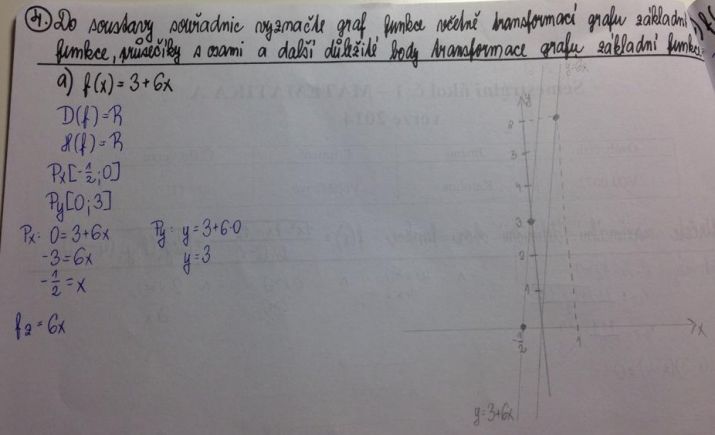 4. Do soustavy souřadnic vyznačte graf funkce včetně transformací grafu základní
funkce, průsečíky s osami a další důležité body transformace grafu základní funkce.
a) f(x) = 3+6x
D(f)=R
H(f)=R
Px[-1/2;0]
Py[0;3]
Px: 0=3+6x
-3=6x
-1/2=x
Py: y=3+6·0
y=3
f2=6x
y
5
4
3
2
1
-1/2
1
x
y=3+6x
MATEMATIKA A
verze 2014